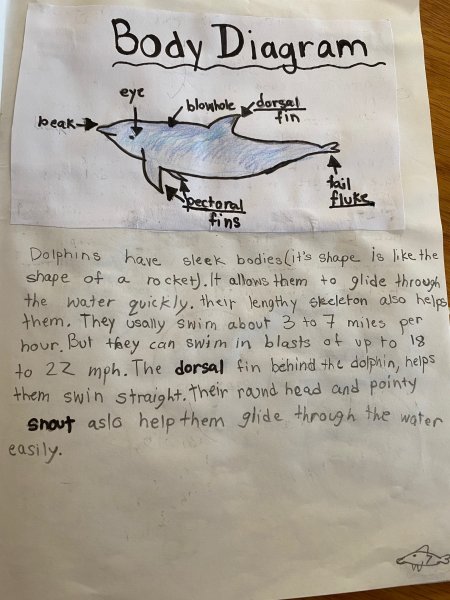 Body Diagram
eye
blowhole
dorsal
fin
beak
pectoral
fins
tail
fluke
Dolphins have sleek bodies (it's shape is like the
shape of a rocket). It allows them to glide through
the water quickly. their lengthy skeleton also helps
them. They usally swim about 3 to 7 miles per
hour. But they can swim in blasts of up to 18
to 22 mph. The dorsal fin behind the dolphin, helps
them swin straight. Their round head and pointy
snout aslo help them glide through the water
easily.
7